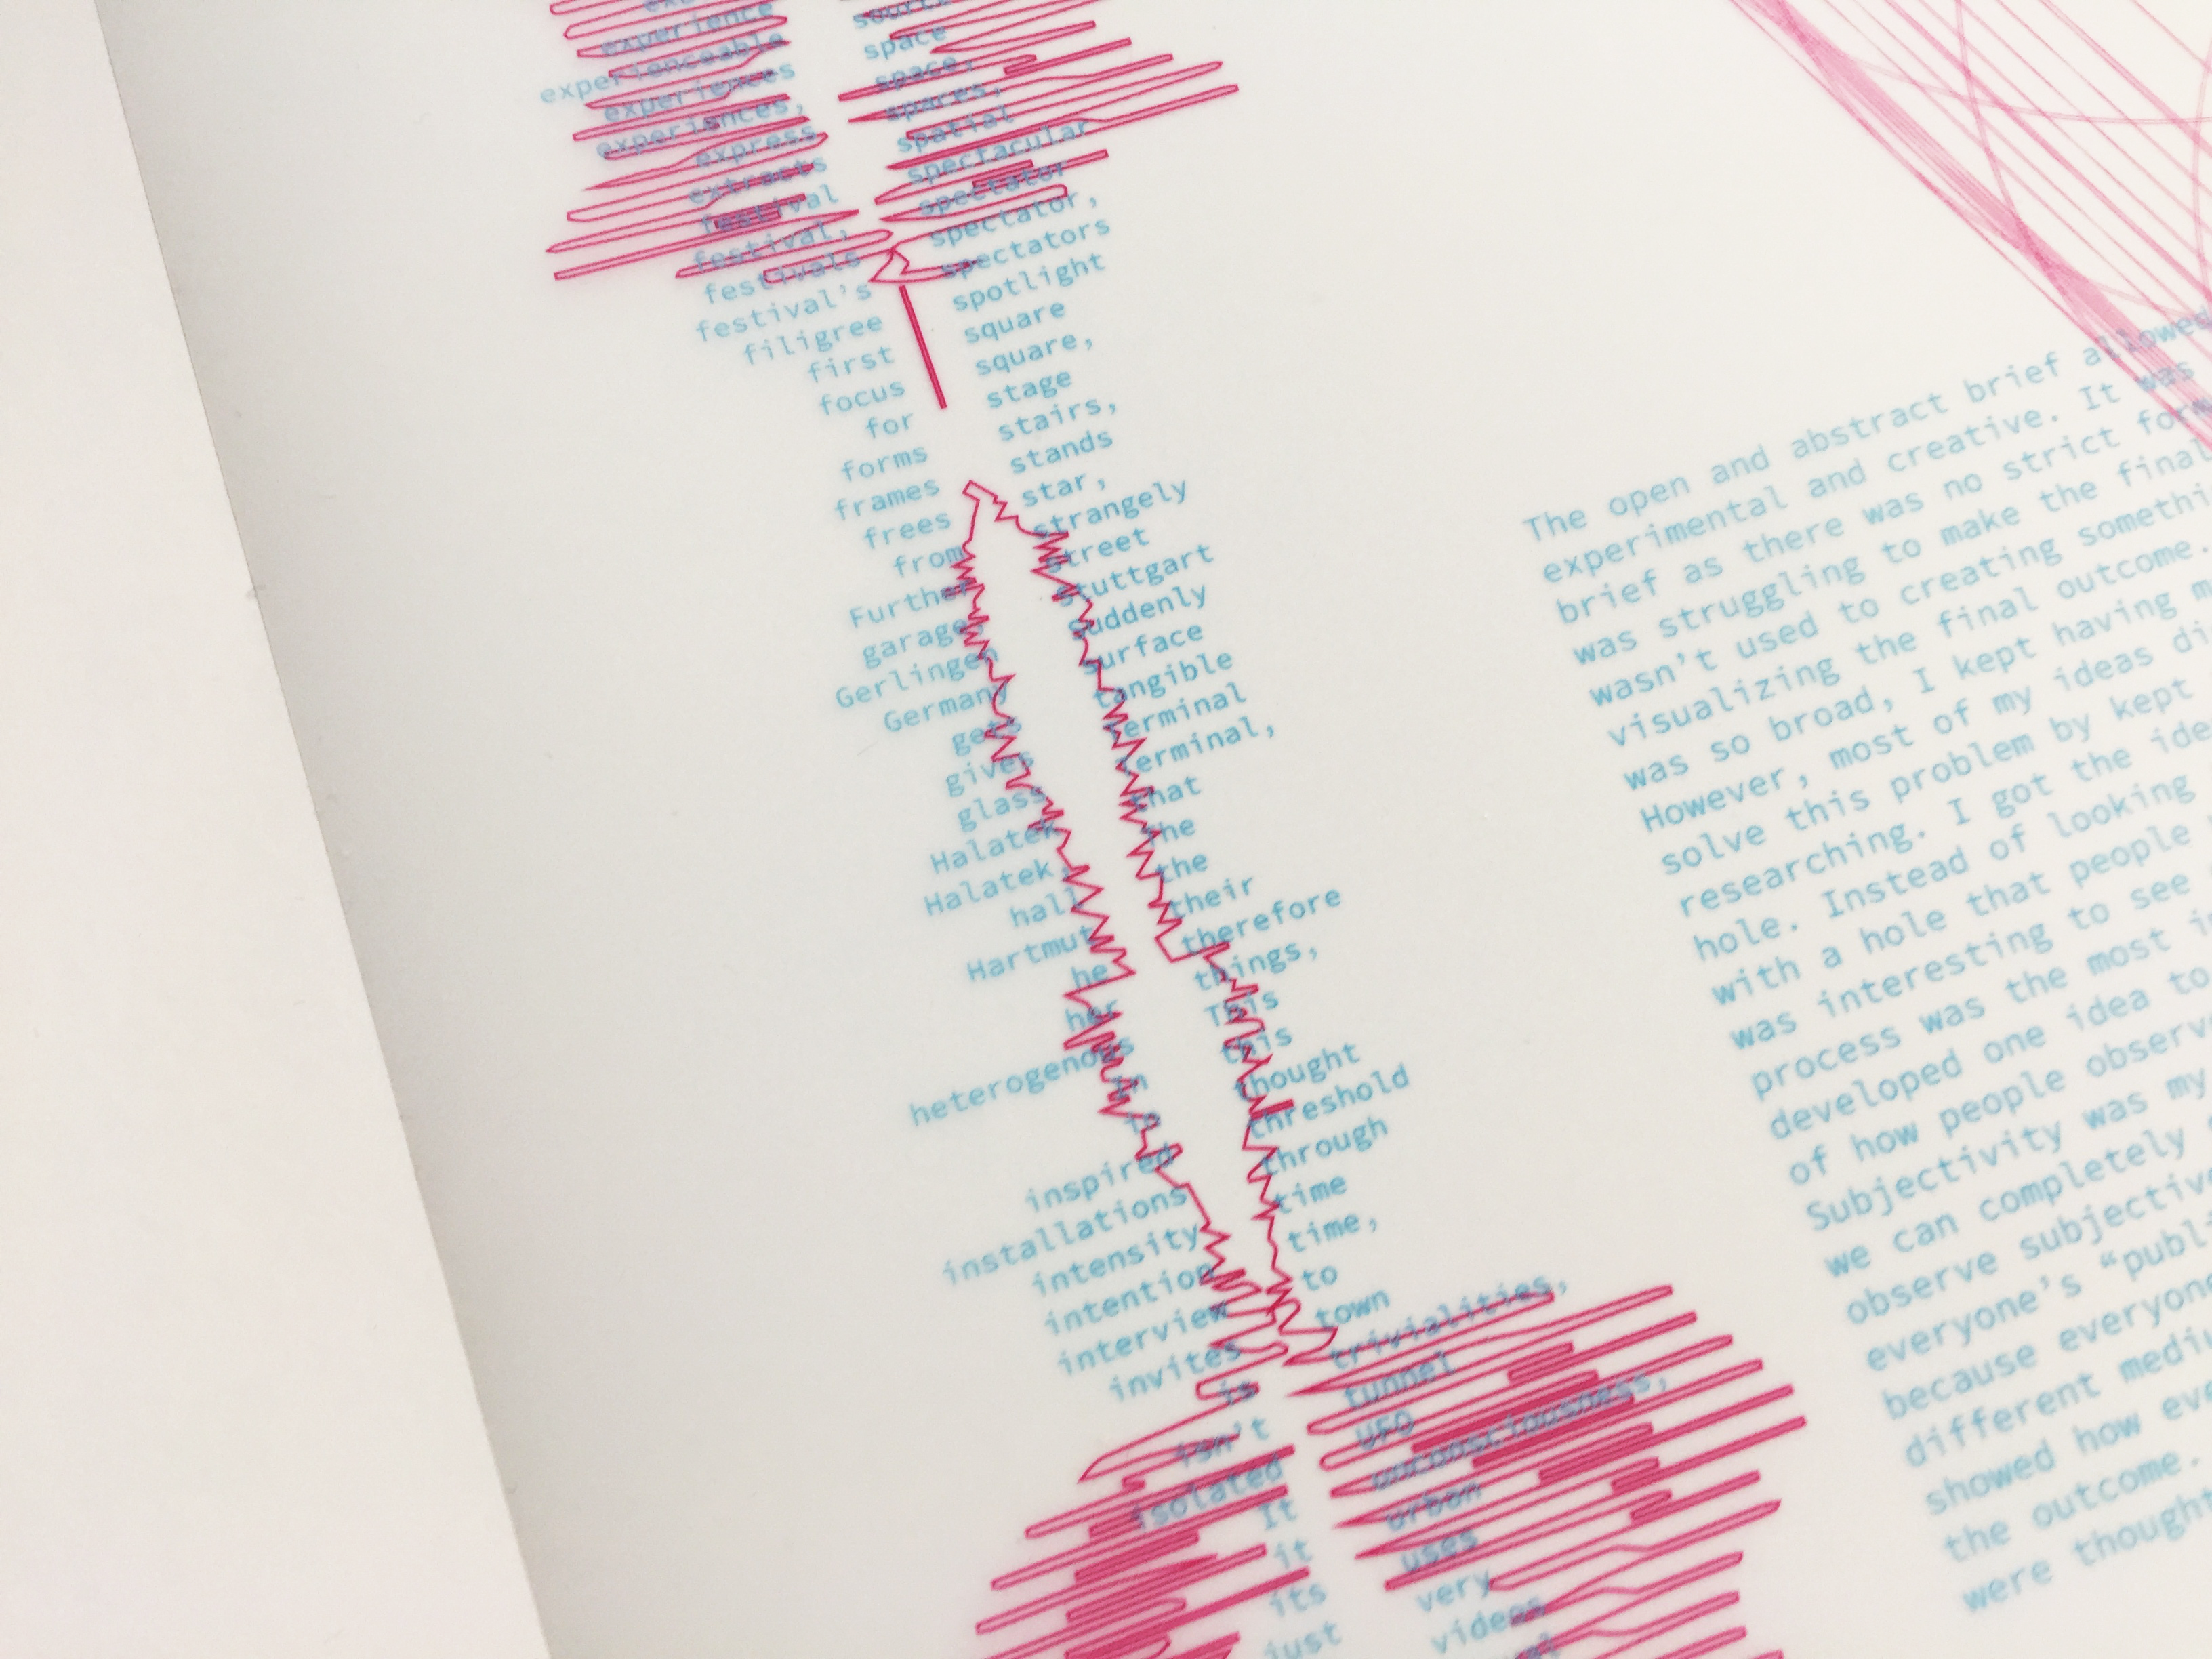 experience
experienceable
experiences
experiences,
express
extracts
festival
festival,
festivals
festival's
filigree
first
focus
for
forms
frames
frees
from
Further
garages
Gerlingen
Germany
gets
gives
glass
Halatek
Halatek,
hall
Hartmut
he
her
heterogenous
in
inspired
installations
intensity
intention
interview
invites
is
isn't
isolated
It
it
its
just
space
space,
spaces,
spatial
spectacular
spectator
spectator,
spectators
spotlight
square
square,
stage
stairs,
stands
star,
strangely
street
Stuttgart
Suddenly
surface
tangible
terminal
terminal,
that
the
the
their
therefore
things,
This
this
thought
threshold
through
time
time,
to
town
trivialities,
tunnel
UFO
unconsciousness,
urban
uses
very
videos
The open and abstract brief allowed
experimental and creative. It was
brief as there was no strict
was struggling to make the final
wasn't used to creating
visualizing the final outcome.
was so broad, I kept having
However, most of my ideas
solve this problem by kept
researching. I got the
hole. Instead of looking
with a hole that people
was interesting to see
process was the most
developed one idea to
of how people
Subjectivity was my
we can completely
observe
everyone's
because
different
showed how
the outcome.
were